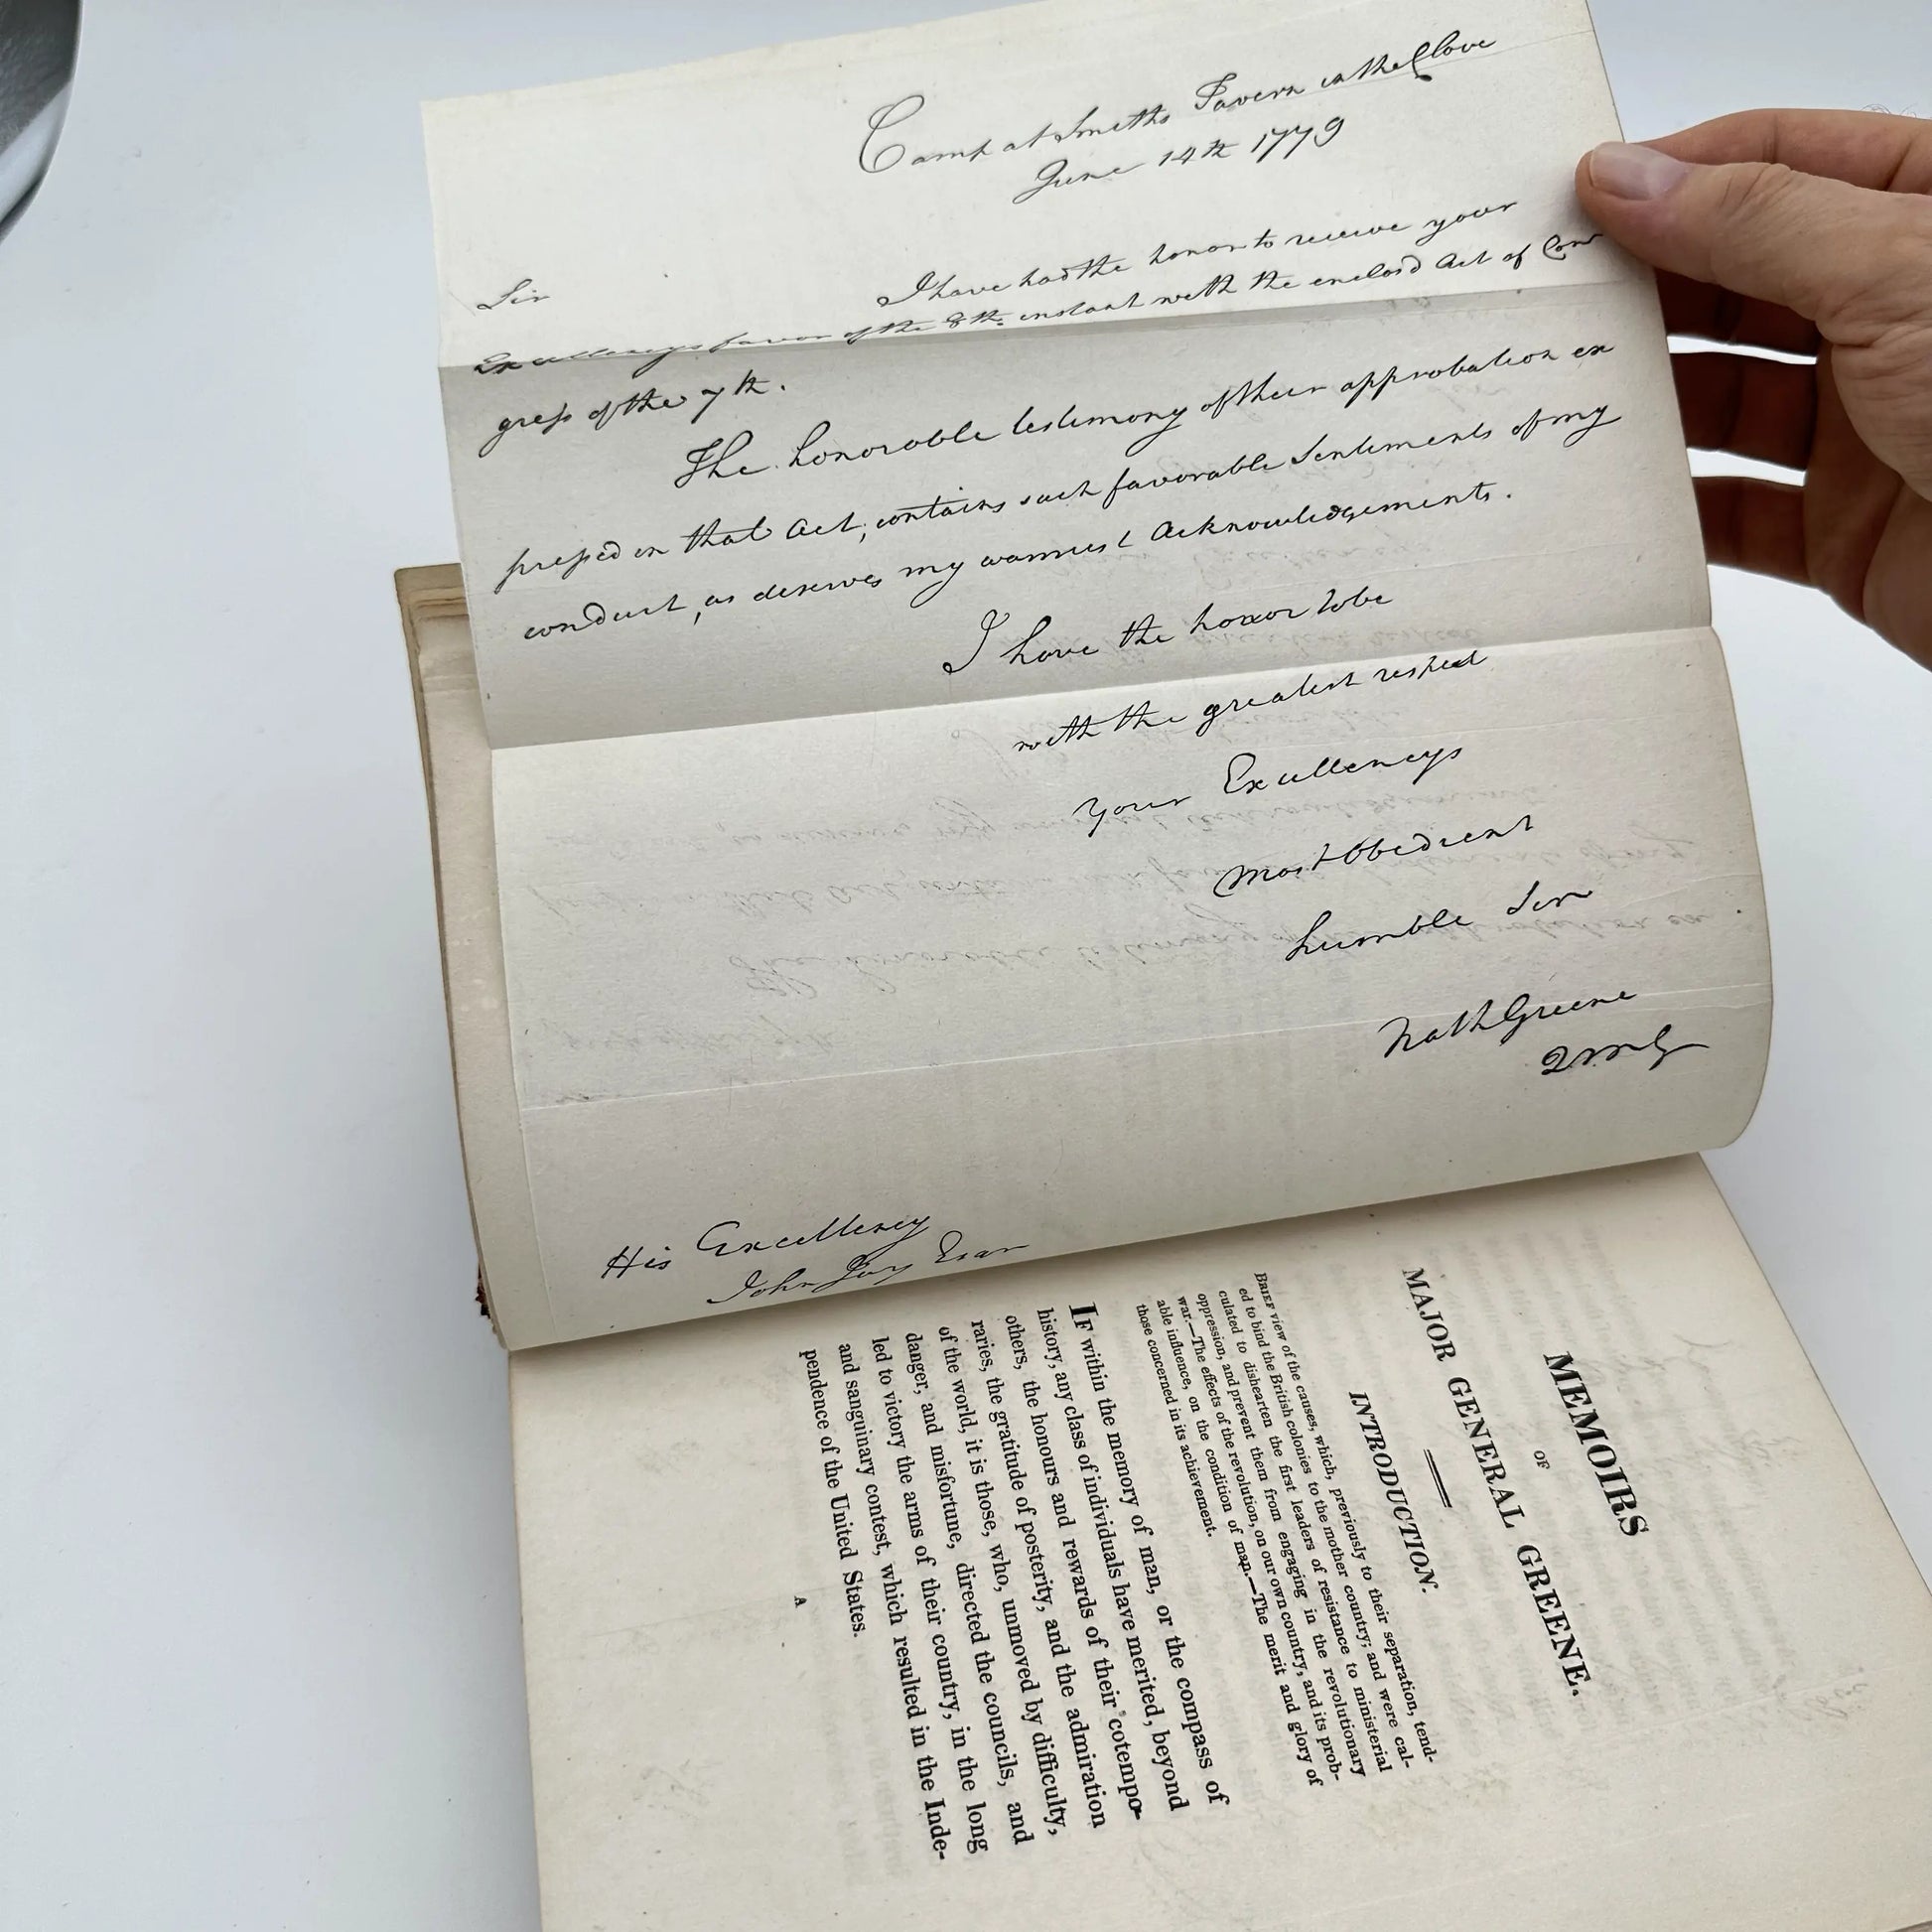 Camp at Smiths Tavern in the Clove
June 14th 1779
Sir
I have had the honor to receive your
Excellencys favor of the 8th. instant with the enclosd Act of Con
gress of the 7th.
The honorable testimony of their approbation ex
pressed in that Act, contains such favorable Sentiments of my
conduct, as deserves my warmest Acknowledgements.
I have the honor to be
with the greatest respect
Your Excellencys
Most Obedient
humble Ser
Nath Greene
QMG
His Excellency
John Jay Esqr
MEMOIRS
OF
MAJOR GENERAL GREENE.
INTRODUCTION.
BRIEF view of the causes, which, previously to their separation, tend-
ed to bind the British colonies to the mother country; and were cal-
culated to dishearten the first leaders of resistance to ministerial
oppression, and prevent them from engaging in the revolutionary
war.—The effects of the revolution, on our own country, and its prob-
able influence, on the condition of man.—The merit and glory of
those concerned in its achievement.
IF within the memory of man, or the compass of
history, any class of individuals have merited, beyond
others, the honours and rewards of their cotempo-
raries, the gratitude of posterity, and the admiration
of the world, it is those, who, unmoved by difficulty,
danger, and misfortune, directed the councils, and
led to victory the arms of their country, in the long
and sanguinary contest, which resulted in the Inde-
pendence of the United States.
A